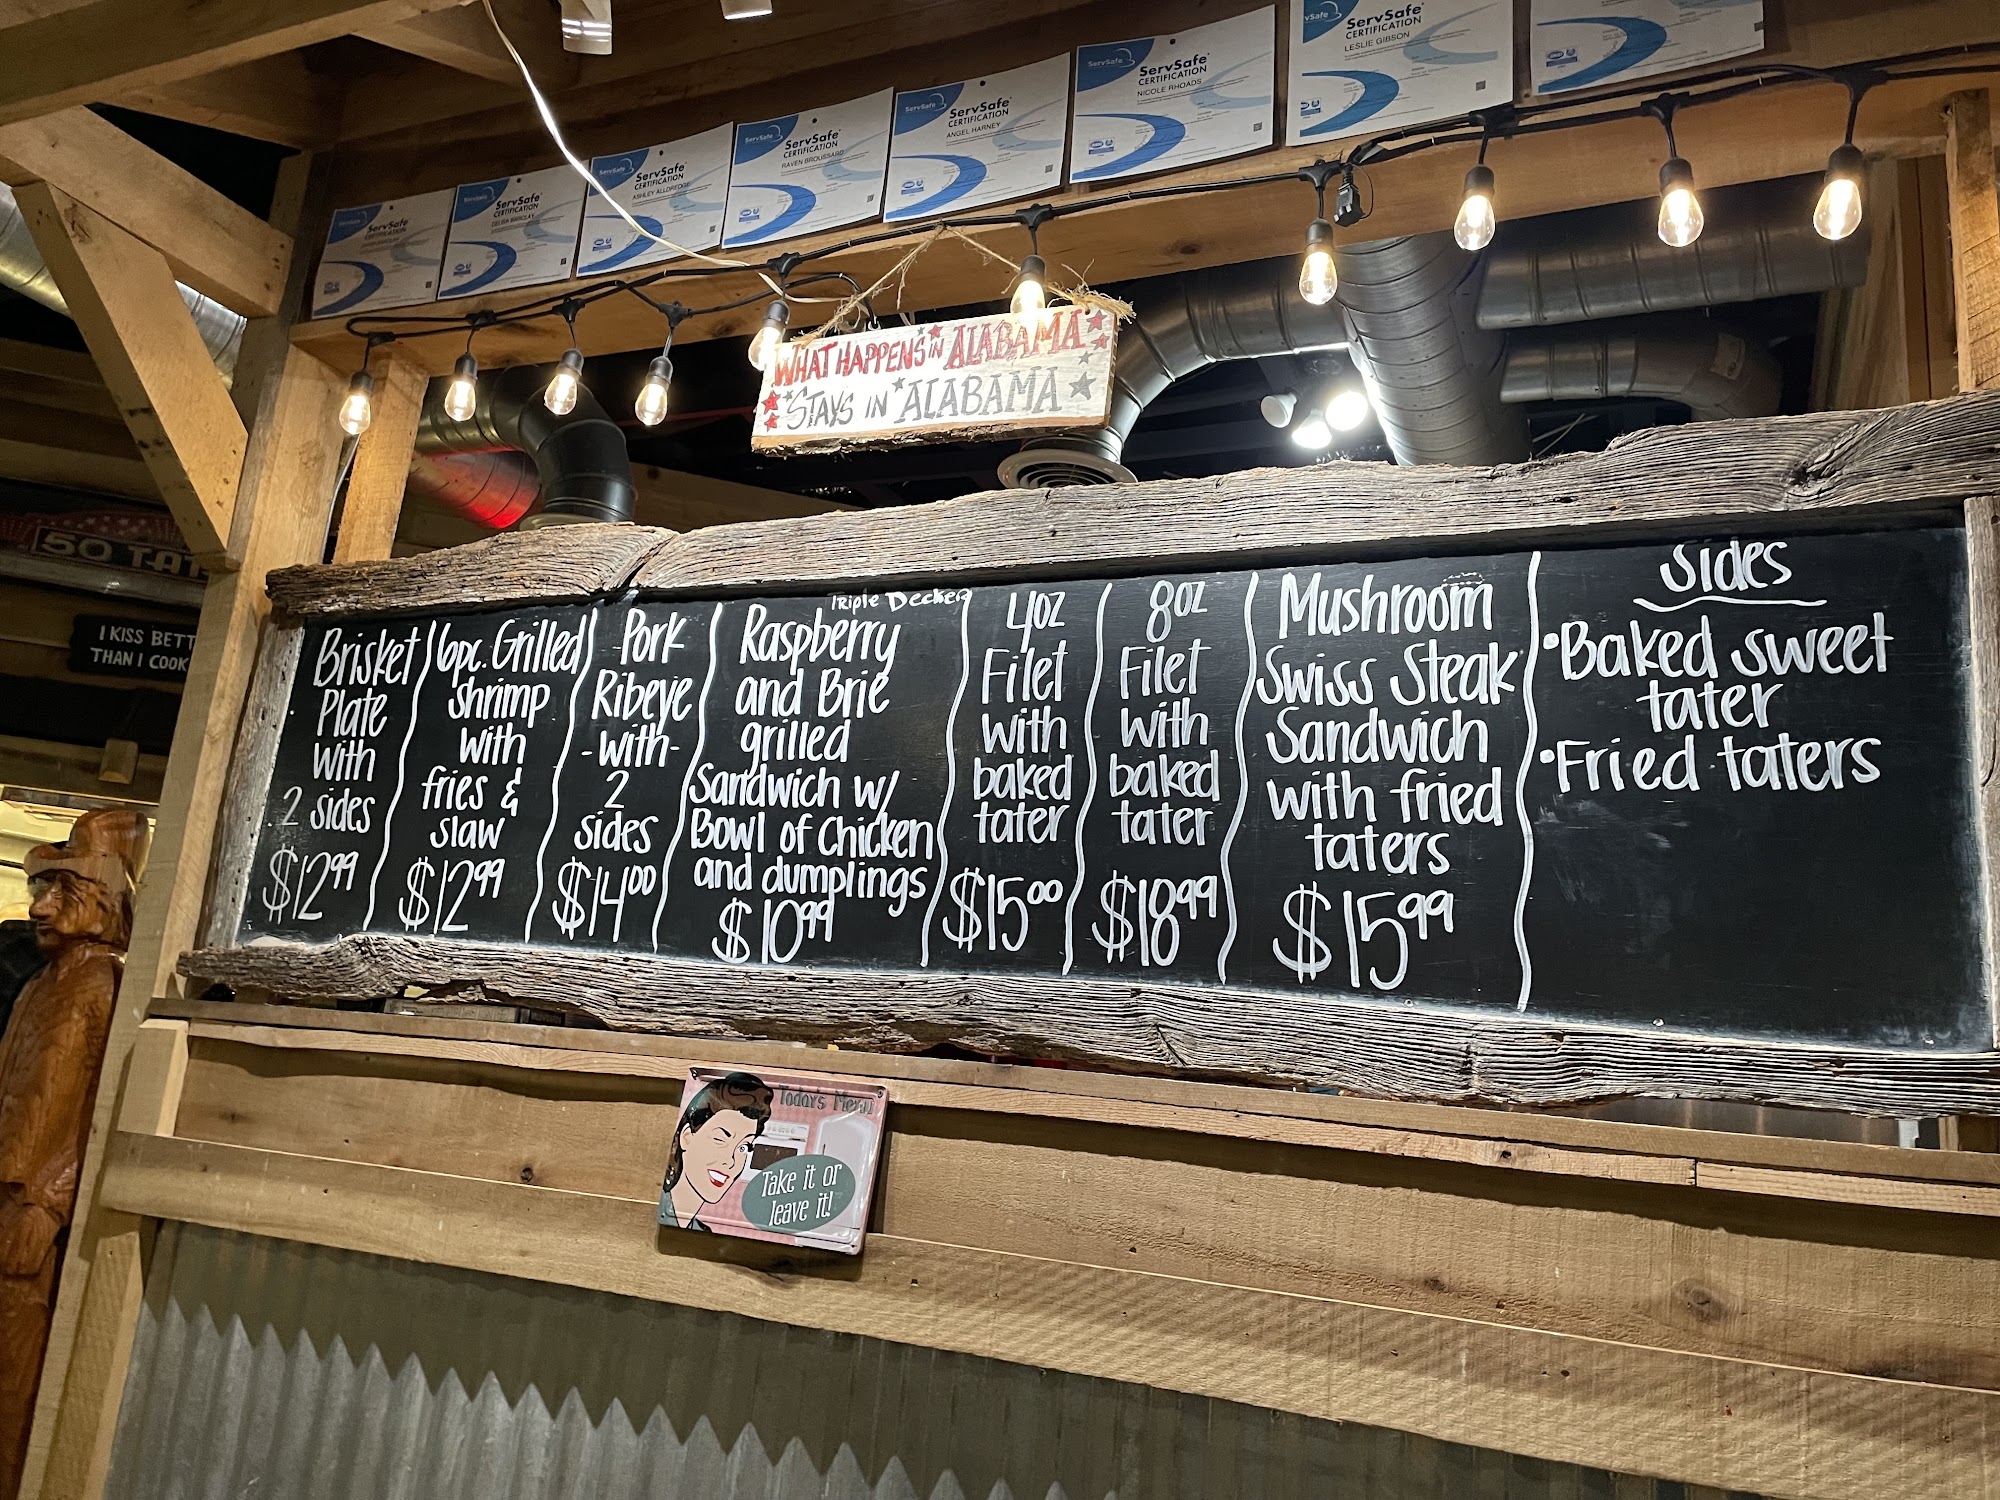 ServSafe
CERTIFICATION
ServSafe
CERTIFICATION
DELISA BARCLAY
ServSafe
ServSafe
CERTIFICATION
ASHLEY ALLDREDGE
ServSafe
ServSafe
CERTIFICATION
RAVEN BROUSSARD
ServSafe
ServSafe
CERTIFICATION
ANGEL HARNEY
ServSafe
ServSafe
CERTIFICATION
NICOLE RHOADS
ServSafe
CERTIFICATION
LESLIE GIBSON
WHAT HAPPENS IN ALABAMA
STAYS IN ALABAMA
50 TAT
I KISS BETT
THAN I COOK
Brisket
Plate
with
2 sides
$12.99
6pc. Grilled
shrimp
with
fries &
slaw
$12.99
Pork
Ribeye
-with-
2
sides
$14.00
Triple Decker
Raspberry
and Brie
grilled
Sandwich w/
Bowl of Chicken
and dumplings
$10.99
4oz
Filet
with
baked
tater
$15.00
8oz
Filet
with
baked
tater
$18.99
Mushroom
Swiss Steak
Sandwich
with fried
taters
$15.99
Sides
•Baked sweet
tater
•Fried taters
Todays Menu
Take it or
leave it!